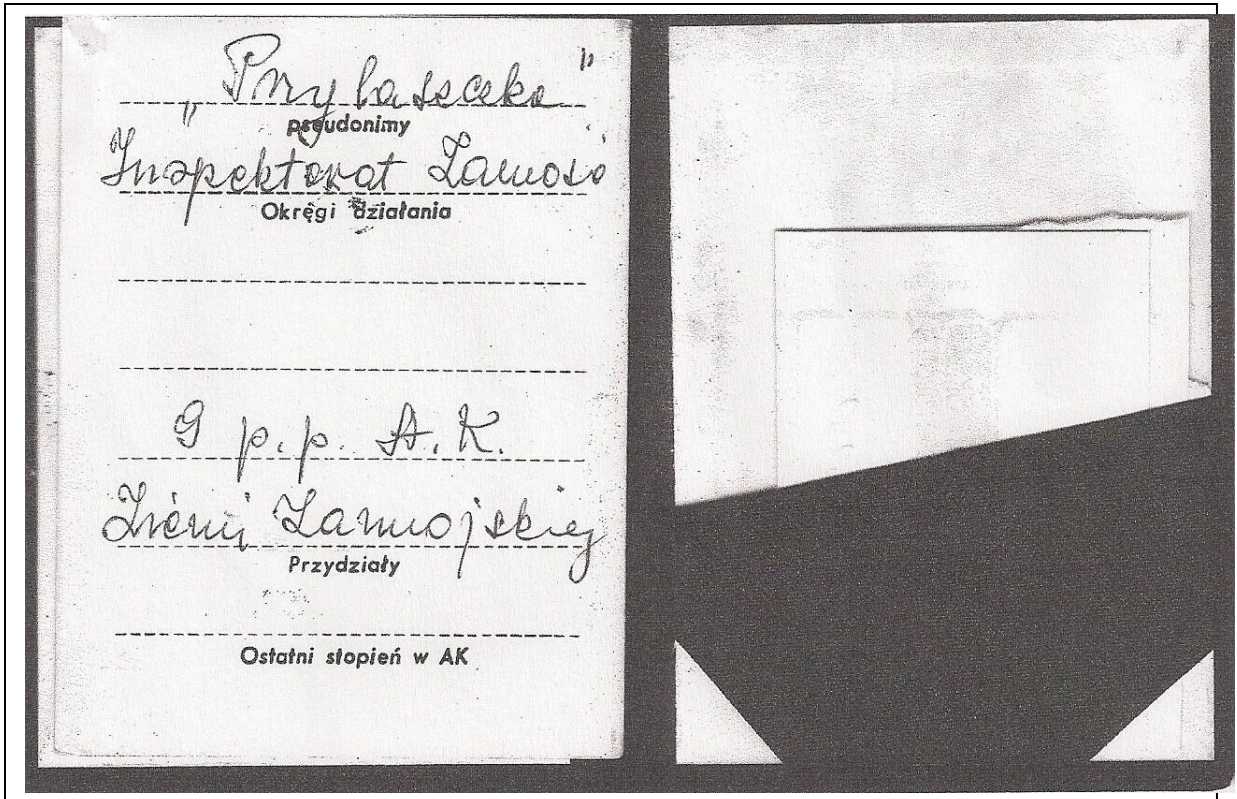 „Przylaszczka”
pseudonimy
Inspektorat Zamość
Okręgi działania
9 p.p. A.K.
Ziemi Zamojskiej
Przydziały
Ostatni stopień w AK